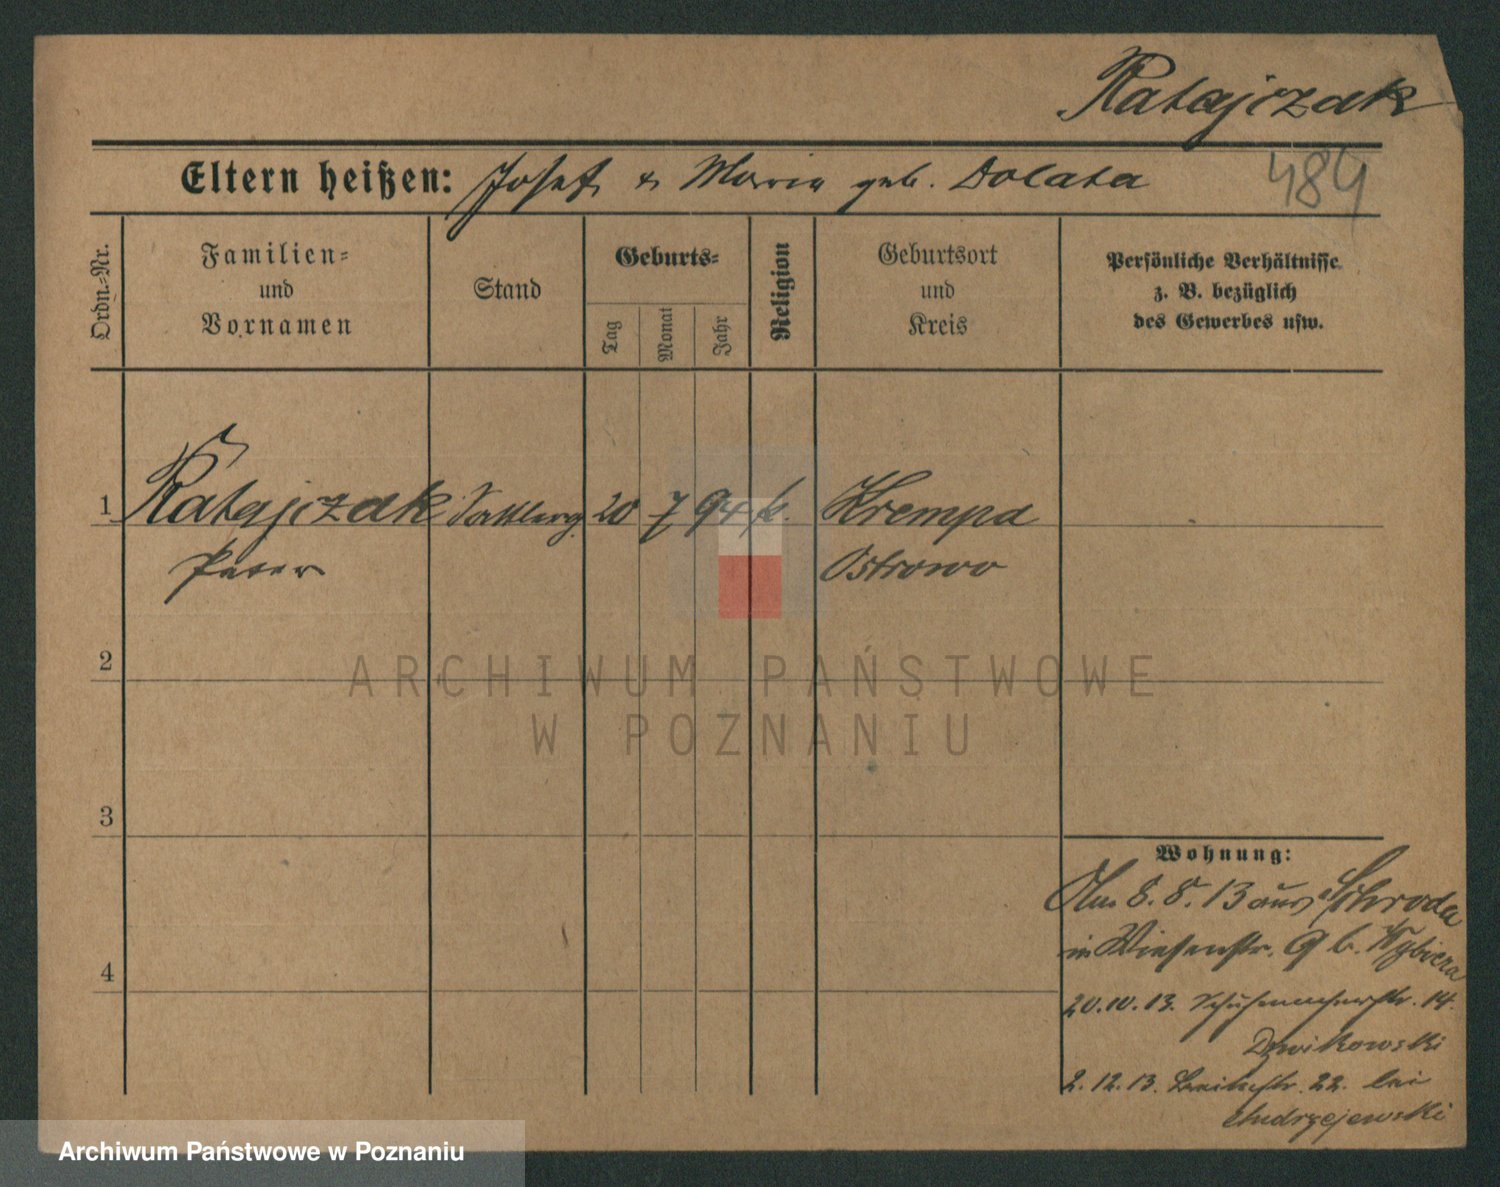 Ratajczak
Eltern heißen: Josef & Maria geb. Dolata
484
Ordn.-Nr.
Familien-
und
Vornamen
Stand
Geburts-
Tag
Monat
Jahr
Religion
Geburtsort
und
Kreis
Persönliche Verhältnisse
z. B. bezüglich
des Gewerbes usw.
1 Ratajczak Sattlerg. 20 7 94 k. Krempa
Peter Ostrowo
2
ARCHIWUM PAŃSTWOWE
W POZNANIU
3
Wohnung:
Am 8. 8. 13 aus Schroda
in Wiesenstr. 9 b. Wybiera
4
20.10.13. Schuhmacherstr. 14.
Dzwikowski
2.12.13. Breitestr. 22. bei
Andrzejewski
Archiwum Państwowe w Poznaniu